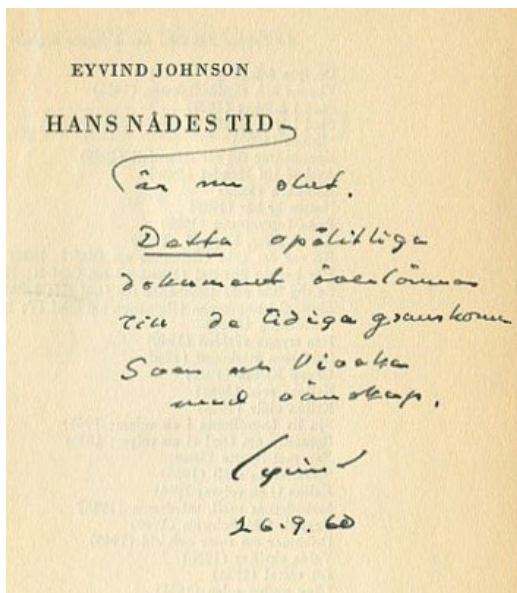 EYVIND JOHNSON
HANS NÅDES TID
är nu slut.
Detta opålitliga
dokument överlämnas
till de tidiga granskarna
Sven och Viveka
med vänskap.
Eyvind
26.9.60